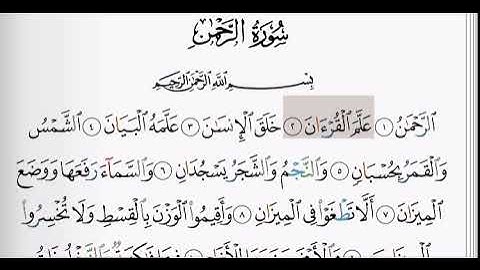 سُورَةُ الرَّحْمَٰن
بِسْمِ اللَّهِ الرَّحْمَٰنِ الرَّحِيمِ
الرَّحْمَٰنُ ١ عَلَّمَ الْقُرْءَانَ ٢ خَلَقَ الْإِنسَٰنَ ٣ عَلَّمَهُ الْبَيَانَ ٤ الشَّمْسُ
وَالْقَمَرُ بِحُسْبَانٍ ٥ وَالنَّجْمُ وَالشَّجَرُ يَسْجُدَانِ ٦ وَالسَّمَآءَ رَفَعَهَا وَوَضَعَ
الْمِيزَانَ ٧ أَلَّا تَطْغَوْا۟ فِي الْمِيزَانِ ٨ وَأَقِيمُوا۟ الْوَزْنَ بِالْقِسْطِ وَلَا تُخْسِرُوا۟